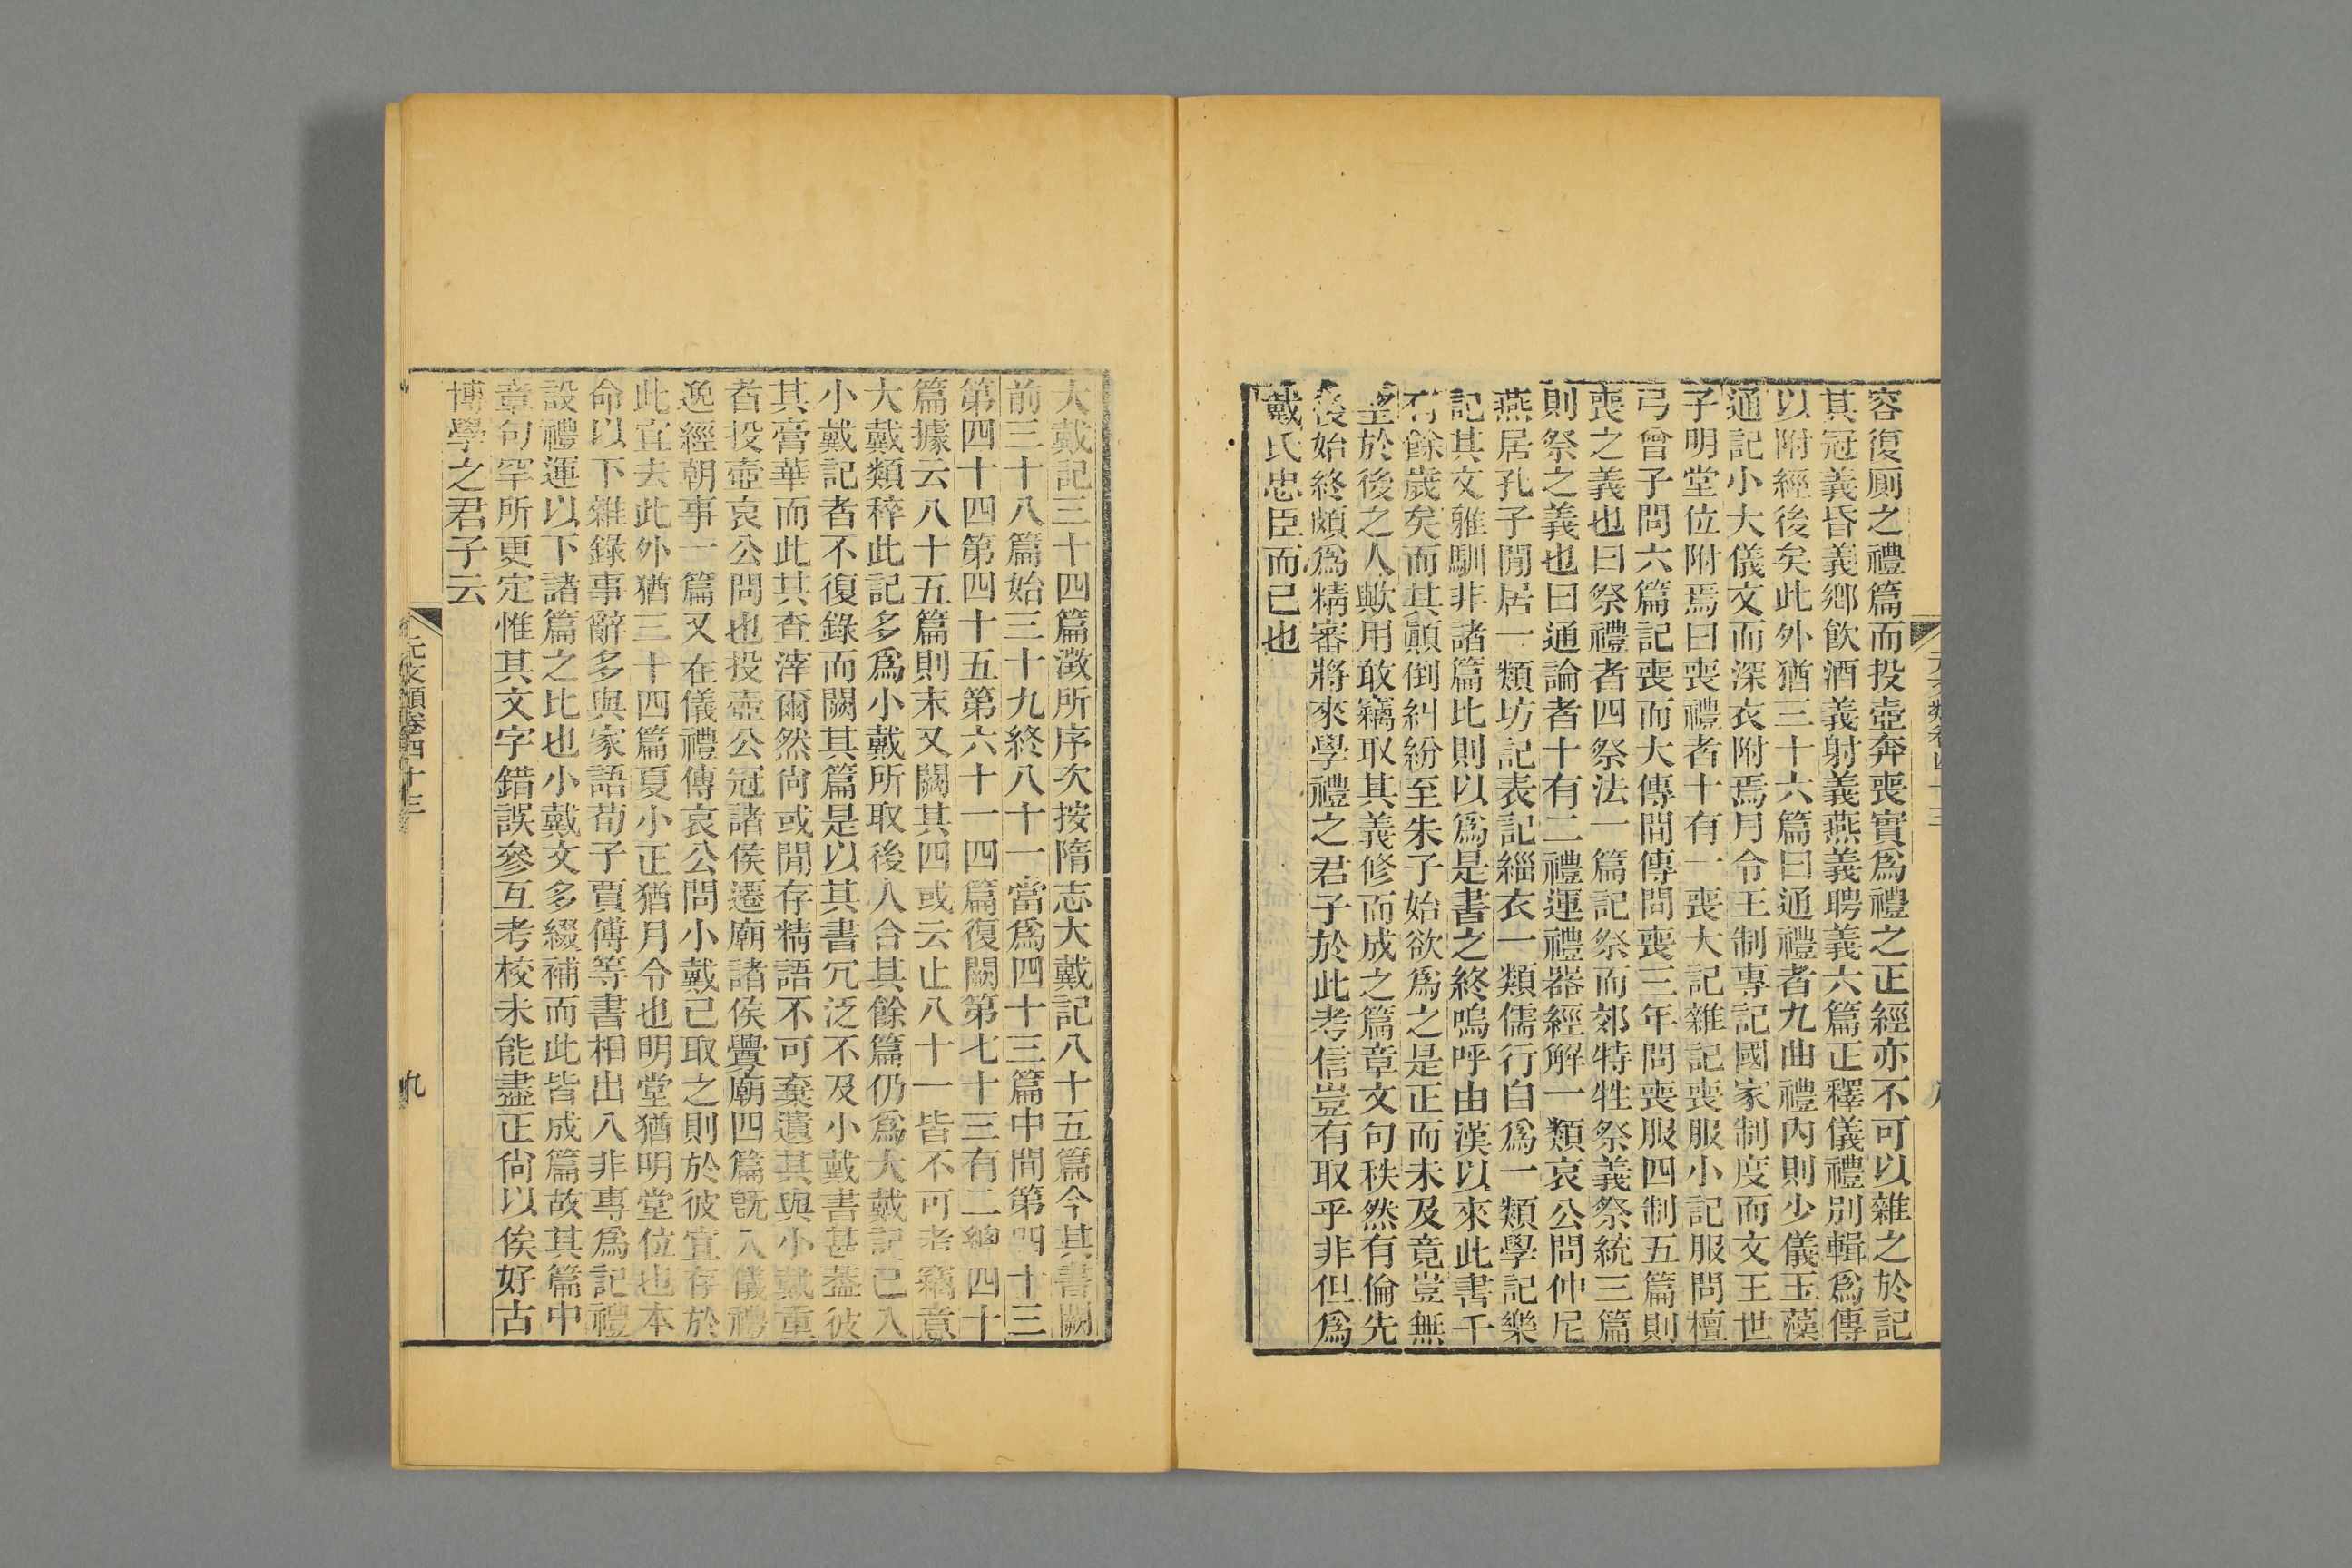 容復厠之禮篇而投壺奔喪實爲禮之正經亦不可以雜之於記
其冠義昏義鄉飲酒義射義燕義聘義六篇正釋儀禮別輯爲傳
以附經後矣此外猶三十六篇曰通禮者九曲禮內則少儀玉藻
通記小大儀文而深衣附焉月令王制專記國家制度而文王世
子明堂位附焉曰喪禮者十有一喪大記雜記喪服小記服問檀
弓曾子問六篇記喪而大傳間傳問喪三年問喪服四制五篇則
喪之義也曰祭禮者四祭法一篇記祭而郊特牲祭義祭統三篇
則祭之義也曰通論者十有二禮運禮器經解一類哀公問仲尼
燕居孔子閒居一類坊記表記緇衣一類儒行自爲一類學記樂
記其文雅馴非諸篇比則以爲是書之終嗚呼由漢以來此書千
有餘歲矣而其顚倒糾紛至朱子始欲爲之是正而未及竟豈無
望於後之人歟用敢竊取其義修而成之篇章文句秩然有倫先
後始終頗爲精審將來學禮之君子於此考信豈有取乎非但爲
戴氏忠臣而已也
大戴記三十四篇澂所序次按隋志大戴記八十五篇今其書闕
前三十八篇始三十九終八十一當爲四十三篇中間第四十三
第四十四第四十五第六十一四篇復闕第七十三有二總四十
篇據云八十五篇則末又闕其四或云止八十一皆不可考竊意
大戴類稡此記多爲小戴所取後人合其餘篇仍爲大戴記已入
小戴記者不復錄而闕其篇是以其書冗泛不及小戴書甚蓋彼
其膏華而此其查滓爾然尙或閒存精語不可棄遺其與小戴重
者投壺哀公問也投壺公冠諸侯遷廟諸侯釁廟四篇旣入儀禮
逸經朝事一篇又在儀禮傳哀公問小戴已取之則於彼宜存於
此宜去此外猶三十四篇夏小正猶月令也明堂猶明堂位也本
命以下雜錄事辭多與家語荀子賈傅等書相出入非專爲記禮
設禮運以下諸篇之比也小戴文多綴補而此皆成篇故其篇中
章句罕所更定惟其文字錯誤參互考校未能盡正尙以俟好古
博學之君子云
元文類卷四十三
九